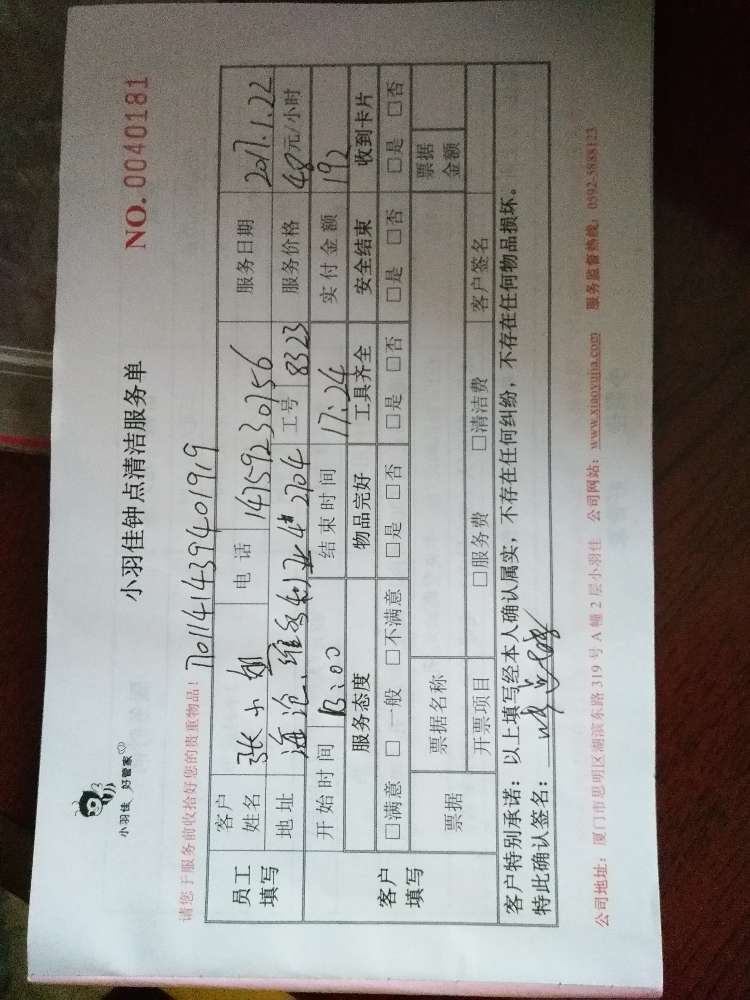 小羽佳 好管家
小羽佳钟点清洁服务单
NO. 0040181
请您于服务前收拾好您的贵重物品!
701141439401919
员工填写
客户姓名 张小姐 电话 14759230756 服务日期 2017.1.22
地址 海沧 2704 工号 8323 服务价格 48元/小时
客户填写
开始时间 13:00 结束时间 17:24 实付金额 192
服务态度 物品完好 工具齐全 安全结束 收到卡片
□满意 □一般 □不满意 □是 □否 □是 □否 □是 □否 □是 □否
票据 票据名称 票据金额
开票项目 □服务费 □清洁费 客户签名
客户特别承诺:以上填写经本人确认属实,不存在任何纠纷,不存在任何物品损坏。
特此确认签名:
公司地址:厦门市思明区湖滨东路 319 号 A 幢 2 层小羽佳 公司网站:www.xiaoyujia.com 服务监督热线:0592-5888123